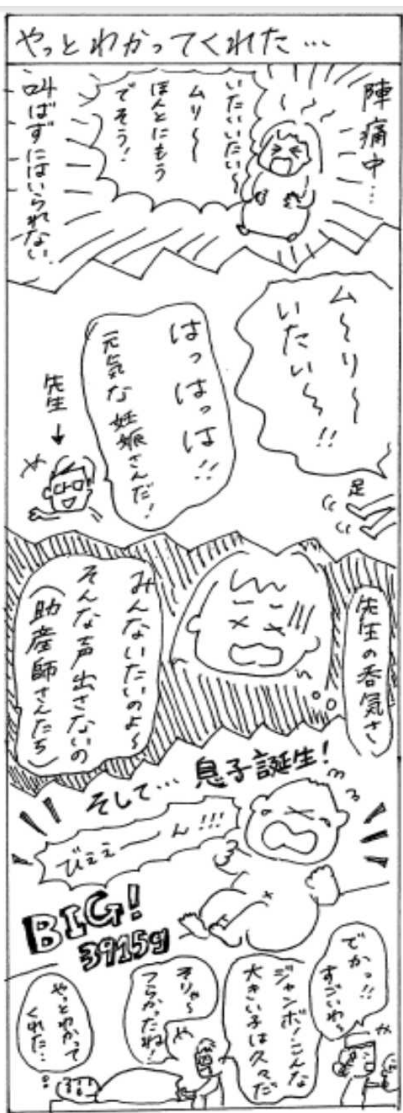 やっとわかってくれた…
陣痛中…
いたいいたい〜
ムリ〜〜
ほんとにもう
でそう!
叫ばずにはいられない
ム〜リ〜
いたい〜!!
はっはっは!!
元気な妊娠さんだ!
先生→
足
先生の呑気さ
みんないたいのよ〜
そんな声出さないの
(助産師さんたち)
そして…
息子誕生!
びええーーん!!!
BIG!
3915g
でかっ!!
すごいわ〜
ジャンボ!こんな
大きい子は久々だ
そりゃ〜
つらかったね!
やっとわかって
くれた…